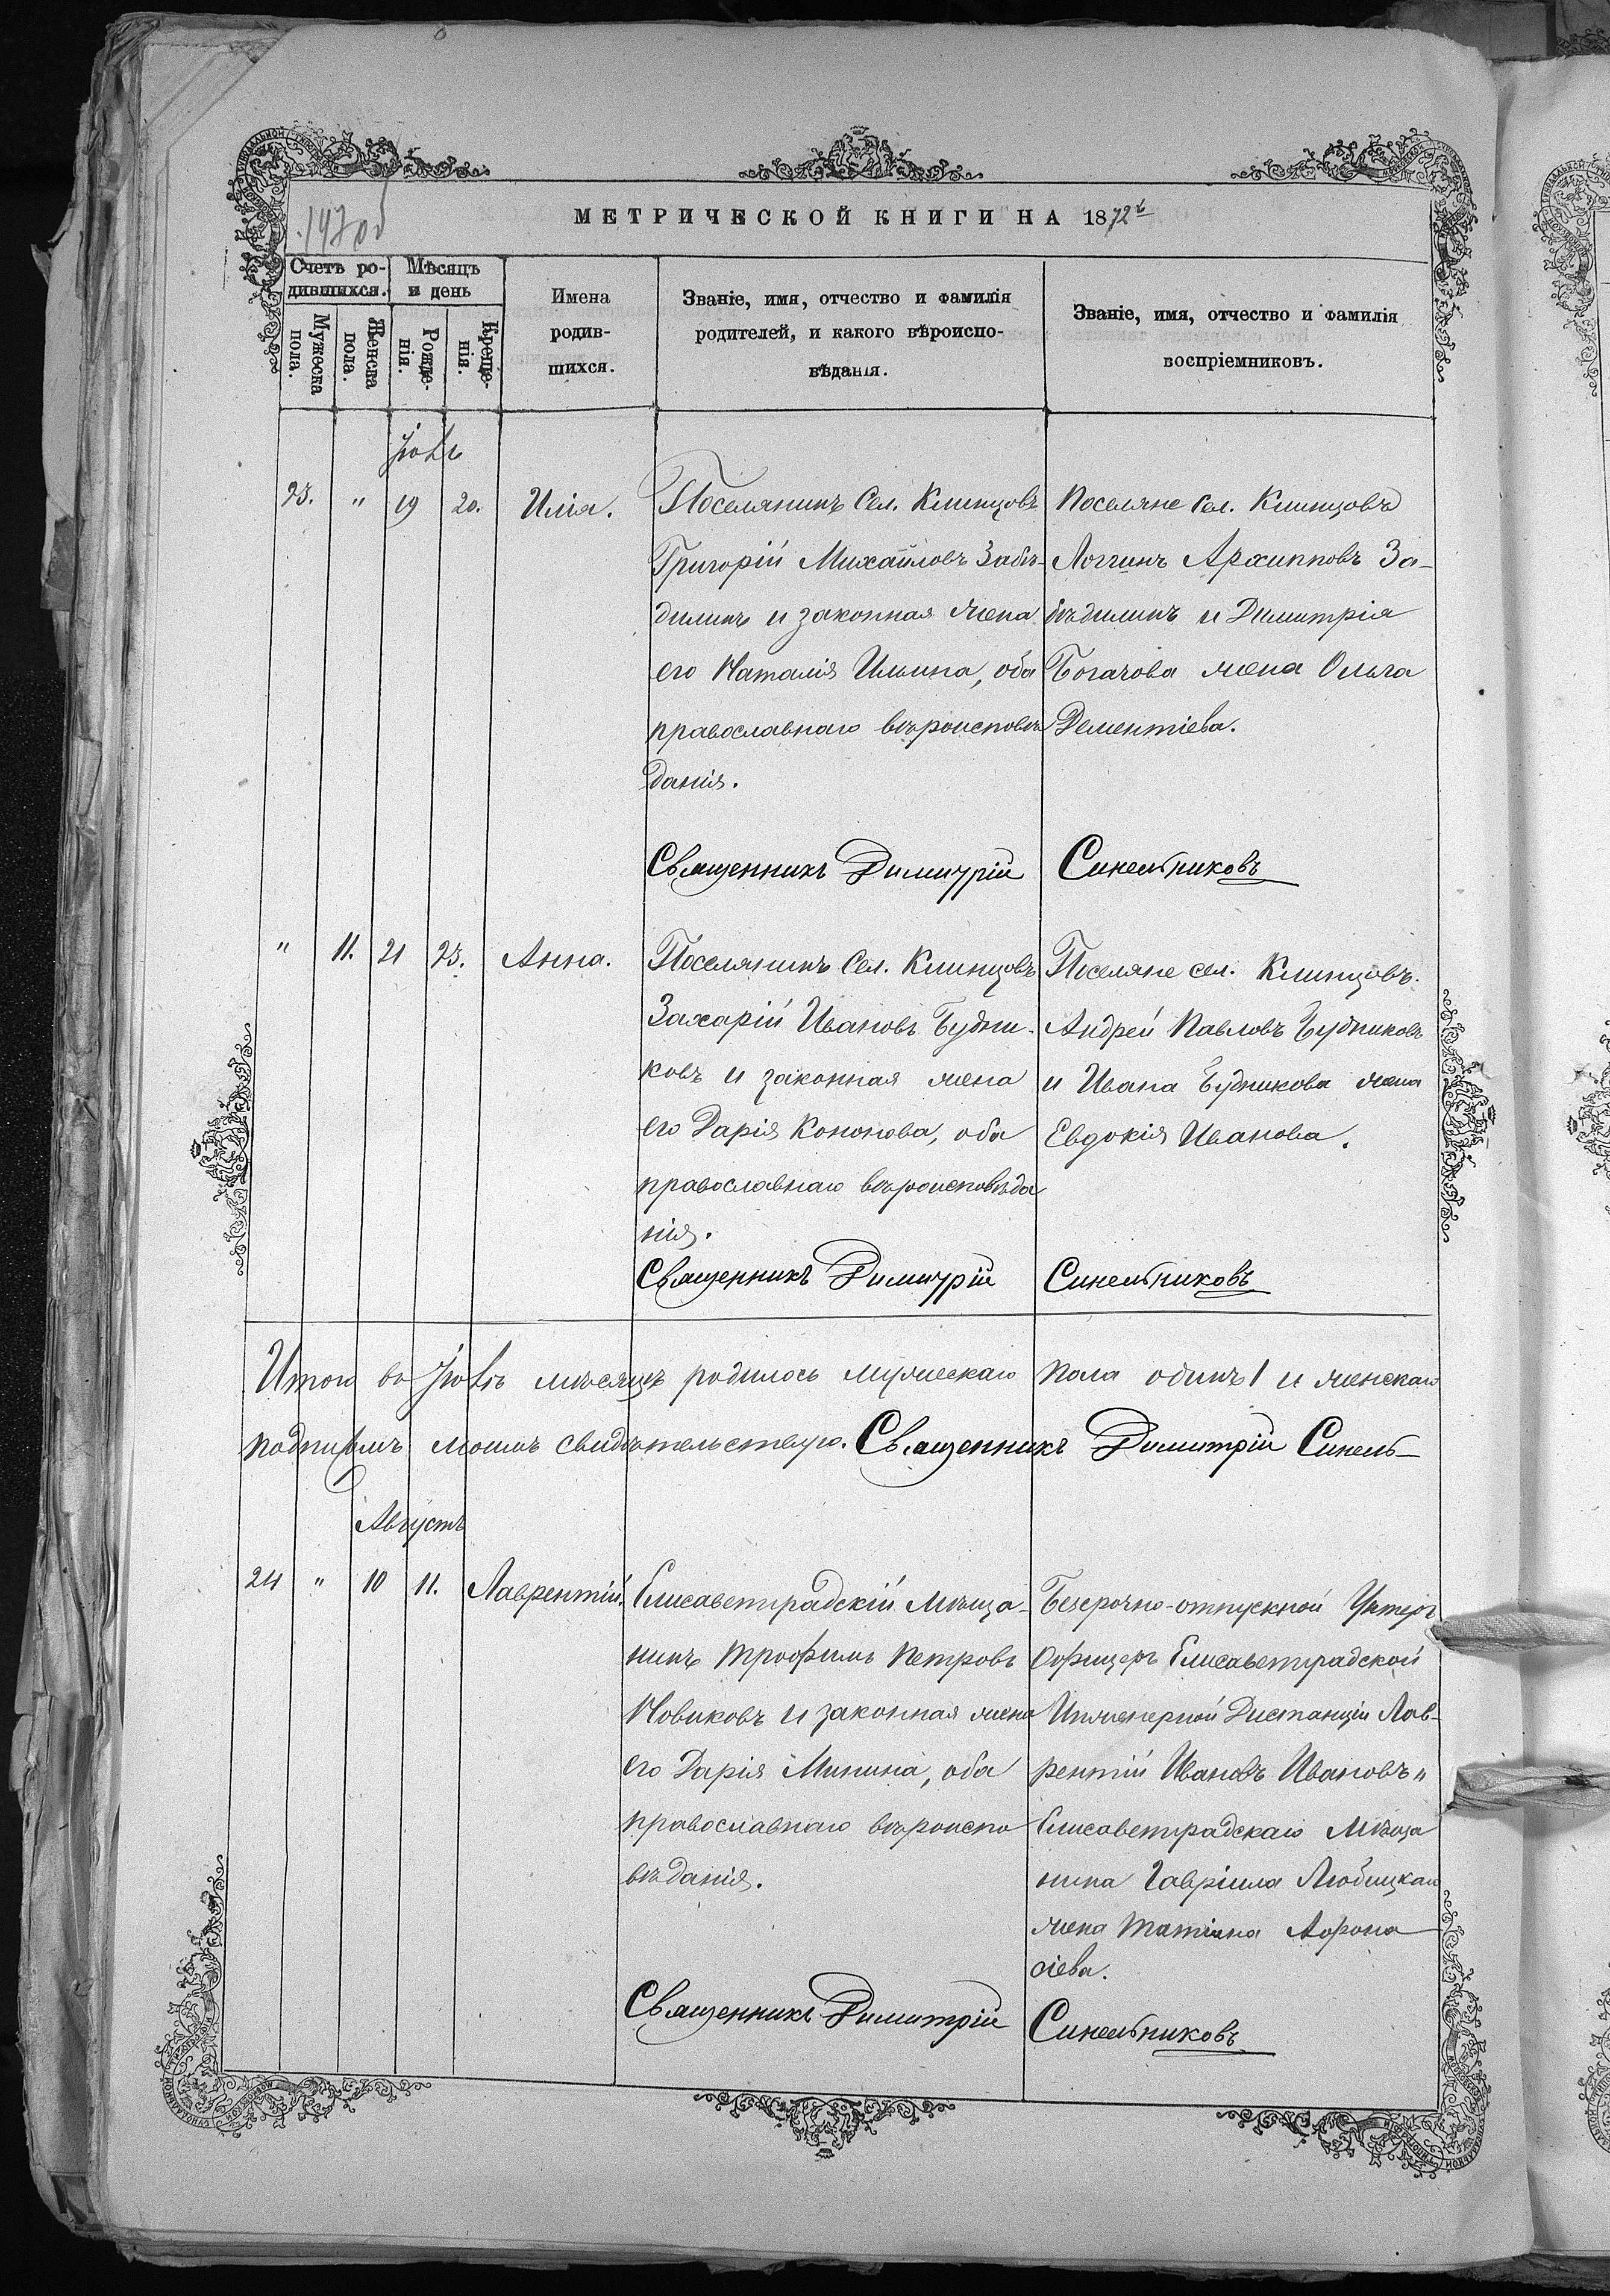 МЕТРИЧЕСКОЙ КНИГИ НА 1872
Счетъ ро-
дившихся.
Мѣсяцъ
и день
Мужеска
пола.
Женска
пола.
Рожде-
нія.
Креще-
нія.
Имена
родив-
шихся.
Званіе, имя, отчество и фамилія
родителей, и какого вѣроиспо-
вѣданія.
Званіе, имя, отчество и фамилія
воспріемниковъ.
23. " 19 20. Илія.
Поселянинъ Сел. Клинцовъ
Григорій Михаиловъ Забѣ-
дилинъ и законная жена
его Наталія Ильина, оба
православнаго вѣроисповѣ
данія.
Поселяне Сел. Клинцовъ
Логгинъ Архипповъ За-
бѣдилинъ и Димитрія
Богачова жена Ольга
Дементіева.
Священникъ Димитрій Синельниковъ
" 11. 21 23. Анна.
Поселянинъ Сел. Клинцовъ
Захарій Ивановъ Будни-
ковъ и законная жена
его Дарія Кононова, оба
православнаго вѣроисповѣда
нія.
Поселяне сел. Клинцовъ.
Андрей Павловъ Будниковъ
и Ивана Будникова жена
Евдокія Иванова.
Священникъ Димитрій Синельниковъ
Итого во мѣсяцѣ родилось мужескаго пола одинъ 1 и женскаго
подписомъ моимъ свидѣтельствую. Священникъ Димитрій Синель-
Августъ
24 " 10 11. Лаврентій.
Елисаветградскій Мѣща-
нинъ Трофимъ Петровъ
Новиковъ и законная жена
его Дарія Минина, оба
православнаго вѣроиспо
вѣданія.
Безсрочно-отпускной Унтеръ
Офицеръ Елисаветградской
Инженерной Дистанціи Лав-
рентій Ивановъ Ивановъ и
Елисаветградскаго Мѣща
нина Гавріила Любицкаго
жена Татіана Афона
сіева.
Священникъ Димитрій Синельниковъ